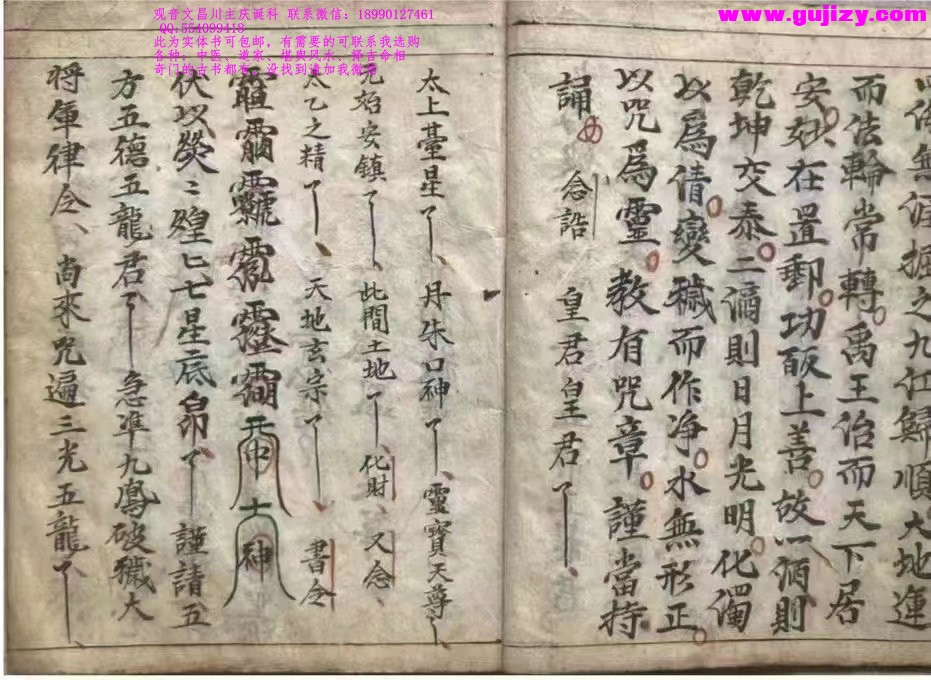 观音文昌川主庆诞科 联系微信：18990127461
QQ:554099418
此为实体书可包邮，有需要的可联系我选购
各种：中医、道家、堪舆风水、择吉命相
奇门的古书都有，没找到请加我微信
www.gujizy.com
之九江歸順大地運
而法輪常轉禹王治而天下居
安妙在置郵功敀上善故一洒則
乾坤交泰二滴則日月光明化濁
以為清變穢而作净水無形正
以咒為靈教有咒章謹當持
誦 念誥 皇君皇君
太上臺星 丹朱口神 靈寶天尊
元始安鎮 此間土地 化財 又念
太乙之精 天地玄宗 書令
神
伏以熒〻煌匕七星底昴 謹請五
方五德五龍君 急准九鳳破穢大
将軍律令 尚來咒遍三光五龍